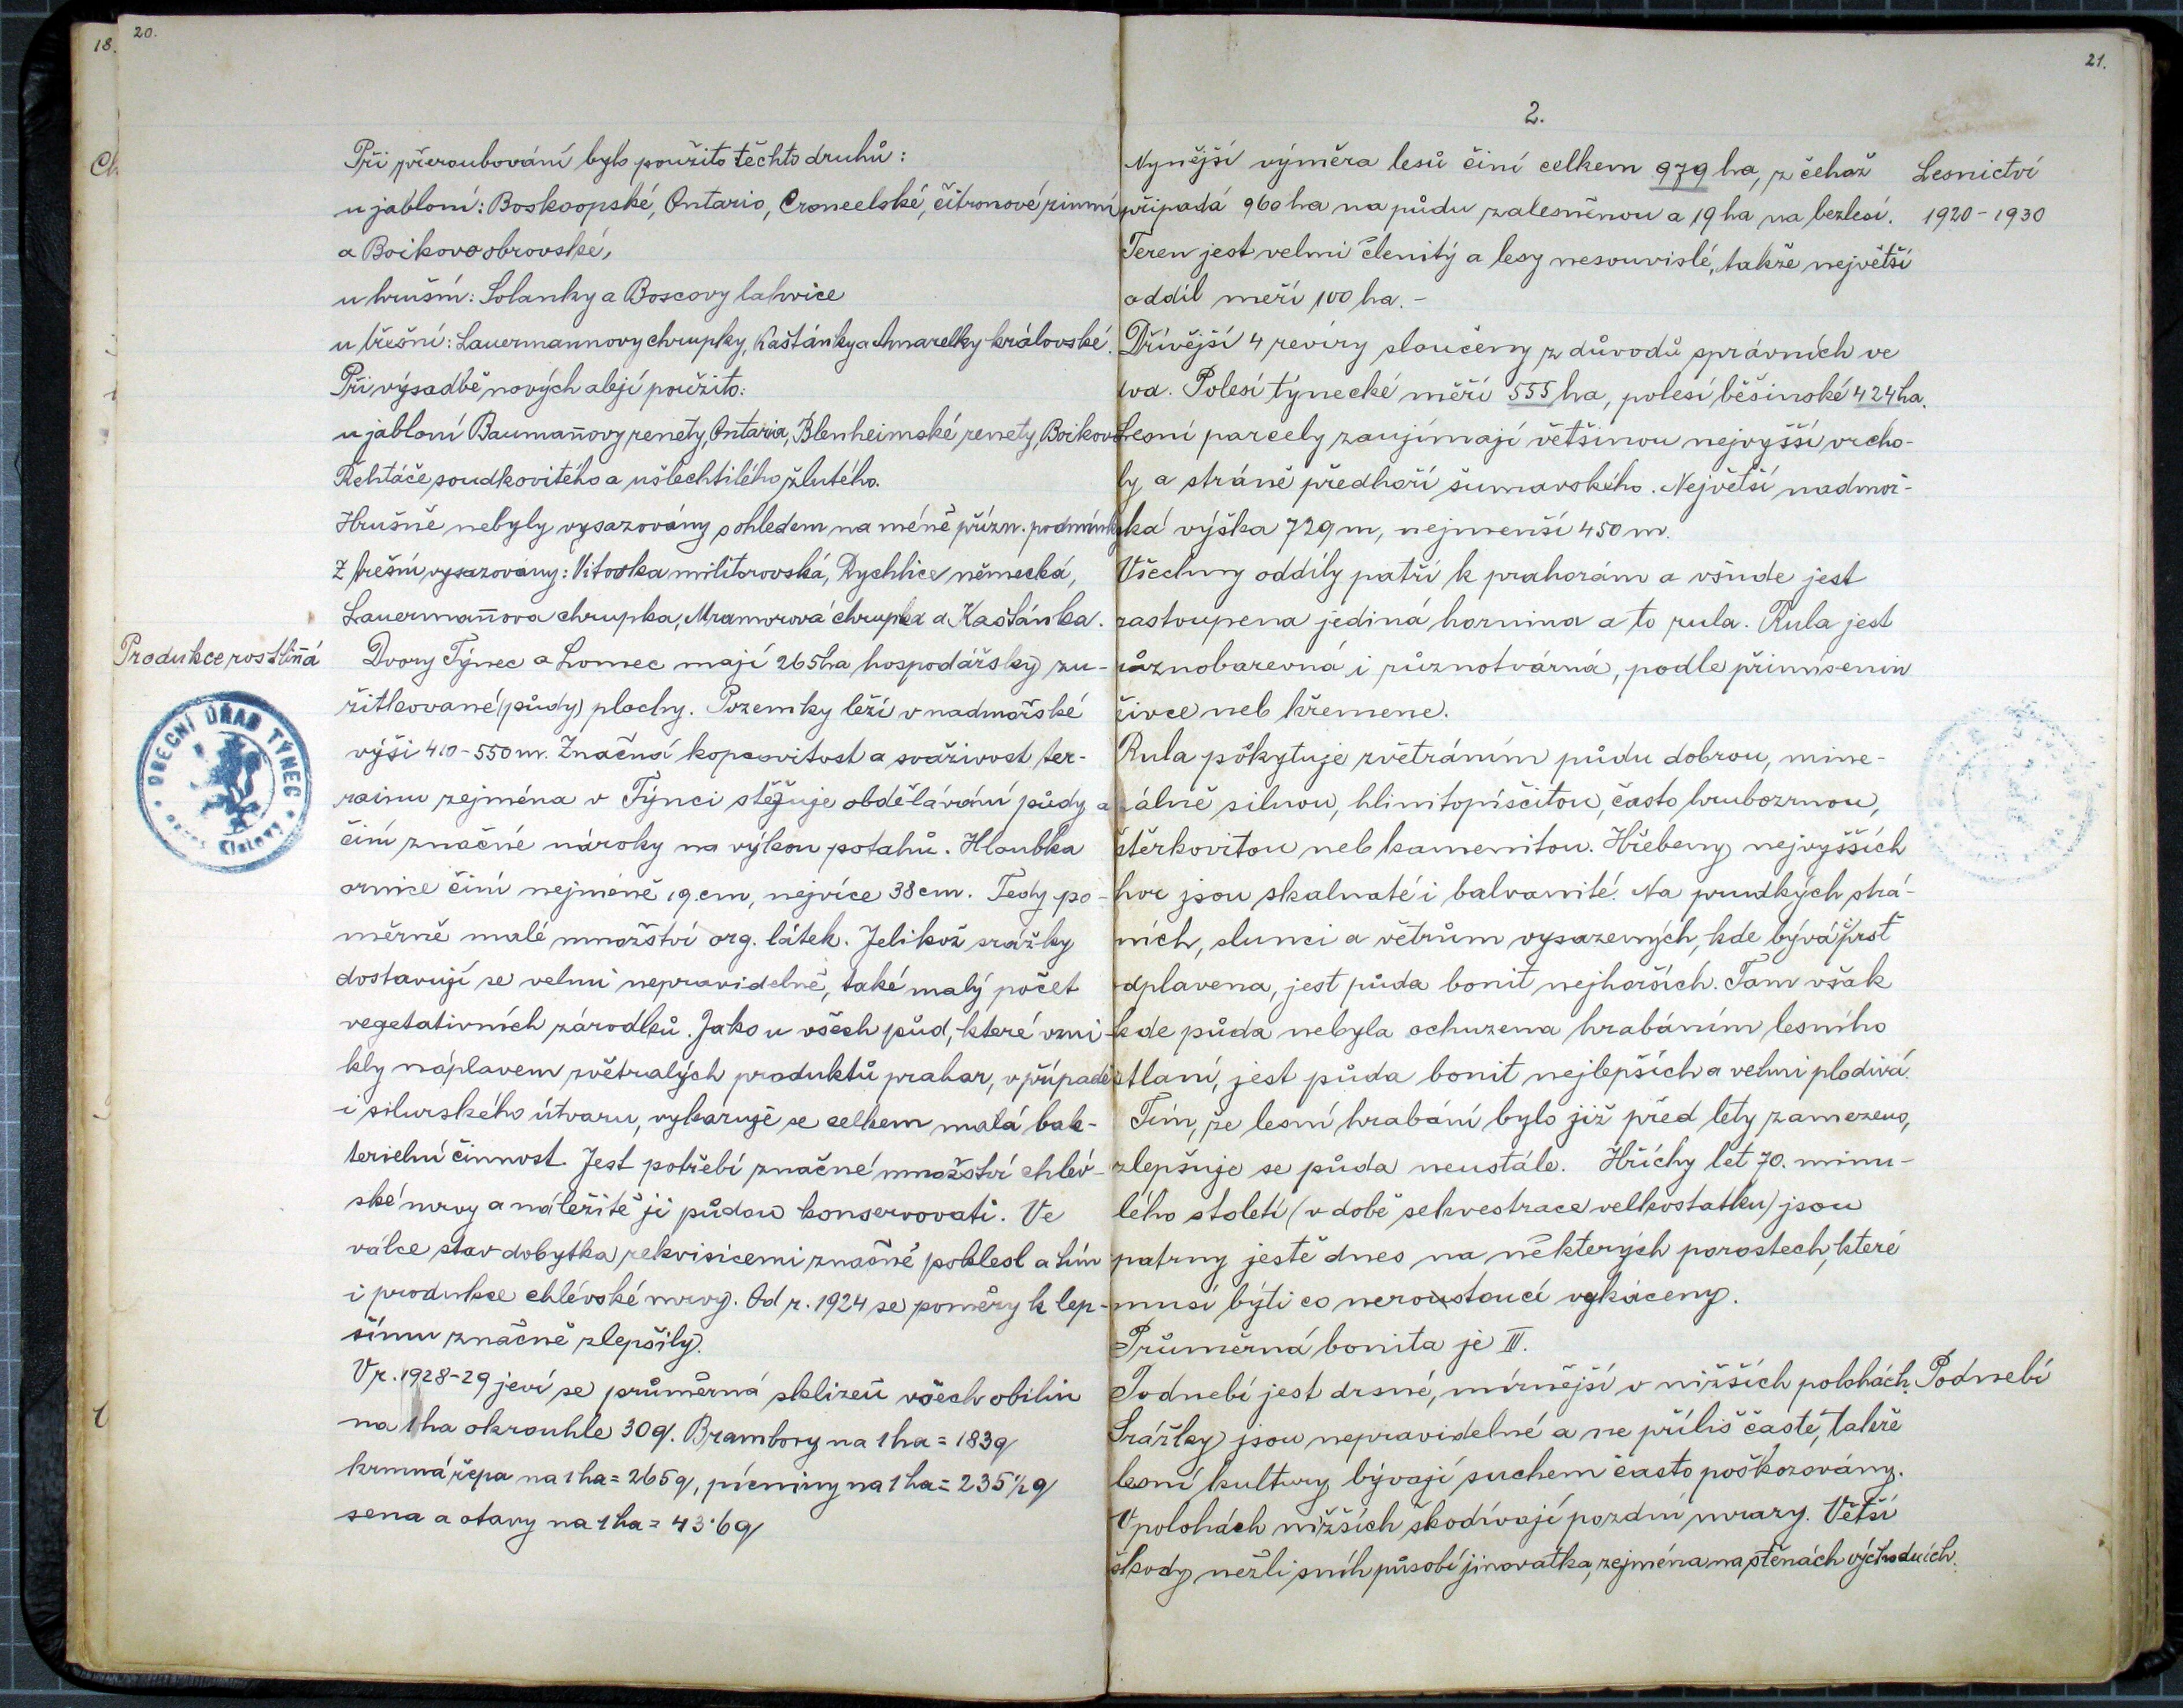 18.
20.
Při přeroubování bylo použito těchto druhů:
u jabloní: Boskoopské, Ontario, Croncelské, čitronové zimní
a Boikovo obrovské,
u hrušní: Solanky a Boscovy lahvice
u třešní: Lauermannovy chrupky, Kaštánky a Amarelky královské.
Při výsadbě nových alejí použito:
u jabloní Baumaňovy renety, Ontaria, Blenheimské renety, Boikovo
Řehtáče soudkovitého a ušlechtilého žlutého.
Hrušně nebyly vysazovány s ohledem na méně přízn. podmínky
Z třešní vysazovany: Vitovka militorovská, Rychlice německá,
Lauermaňova chrupka, Mramorová chrupka a Kaštánka.
Produkce rostliňá
Dvory Týnec a Lomec mají 265ha hospodářsky zu-
žitkované (půdy) plochy. Pozemky leží v nadmořské
výši 410-550m. Značná kopcovitost a svážívost ter-
rainu zejména v Týnci stěžuje obdělávání půdy a
činí značné nároky na výkon potahů. Hloubka
ornice činí nejméně 19.cm, nejvíce 38cm. Tedy po-
měrně malé množství org. látek. Jelikož srážky
dostavují se velmi nepravidelně, také malý počet
vegetativních zárodků. Jako u všech půd, které vzni-
kly náplavem zvětralých produktů prahor, v případě
i silurského útvaru, vykazuje se celkem malá bak-
terielní činnost. Jest potřebí značné množství chlév-
ské mrvy a náležitě ji půdou konservovati. Ve
válce stav dobytka rekvisicemi značně poklesl a tím
i produkce chlévské mrvy. Od r. 1924 se poměry k lep-
šímu značně zlepšily.
V r. 1928-29 jeví se průměrná sklizeň všech obilin
na 1 ha okrouhle 30q. Brambory na 1 ha = 183q
krmná řepa na 1 ha = 265q, pícniny na 1 ha = 235½q
sena a otavy na 1 ha = 43·6q
OBECNÍ ÚŘAD TÝNEC
Klatovy
21.
2.
Nynější výměra lesů činí celkem 979 ha, z čehož
připadá 960 ha na půdu zalesněnou a 19 ha na bezlesí.
Lesnictví
1920-1930
Teren jest velmi členitý a lesy nesouvislé, takže největší
oddíl měří 100 ha.-
Dřívější 4 revíry sloučeny z důvodů správních ve
dva. Polesí týnecké měří 555 ha, polesí běšinské 424 ha.
Lesní parcely zaujímají většinou nejvyšší vrcho-
ly a stráně předhoří šumavského. Největší nadmoř-
ská výška 729 m, nejmenší 450 m.
Všechny oddíly patří k prahorám a všude jest
zastoupena jediná hornina a to rula. Rula jest
různobarevná i různotvárná, podle přimísenin
živce neb křemene.
Rula poskytuje zvětráním půdu dobrou, mine-
rálně silnou, hlinitopísčitou, často hrubozrnou,
štěrkovitou neb kamenitou. Hřebeny nejvyšších
hor jsou skalnaté i balvanité. Na prudkých strá-
ních, slunci a větrům vysazených, kde bývá prsť
odplavena, jest půda bonit nejhorších. Tam však
kde půda nebyla ochuzena hrabáním lesního
stlaní, jest půda bonit nejlepších a velmi plodivá.
Tím, že lesní hrabání bylo již před lety zamezeno,
zlepšuje se půda neustále. Hříchy let 70. minu-
lého století (v době sekvestrace velkostatku) jsou
patrny ještě dnes na některých porostech, které
musí býti co neroustoucí vykáceny.
Průměrná bonita je III.
Podnebí jest drsné, mírnější v nižších polohách.
Podnebí
Srážky jsou nepravidelné a ne příliš časté, takže
lesní kultury bývají suchem často poškozovány.
V polohách nižších škodívají pozdní mrazy. Větší
škody nežli sníh působí jinovatka, zejména na stěnách východních.